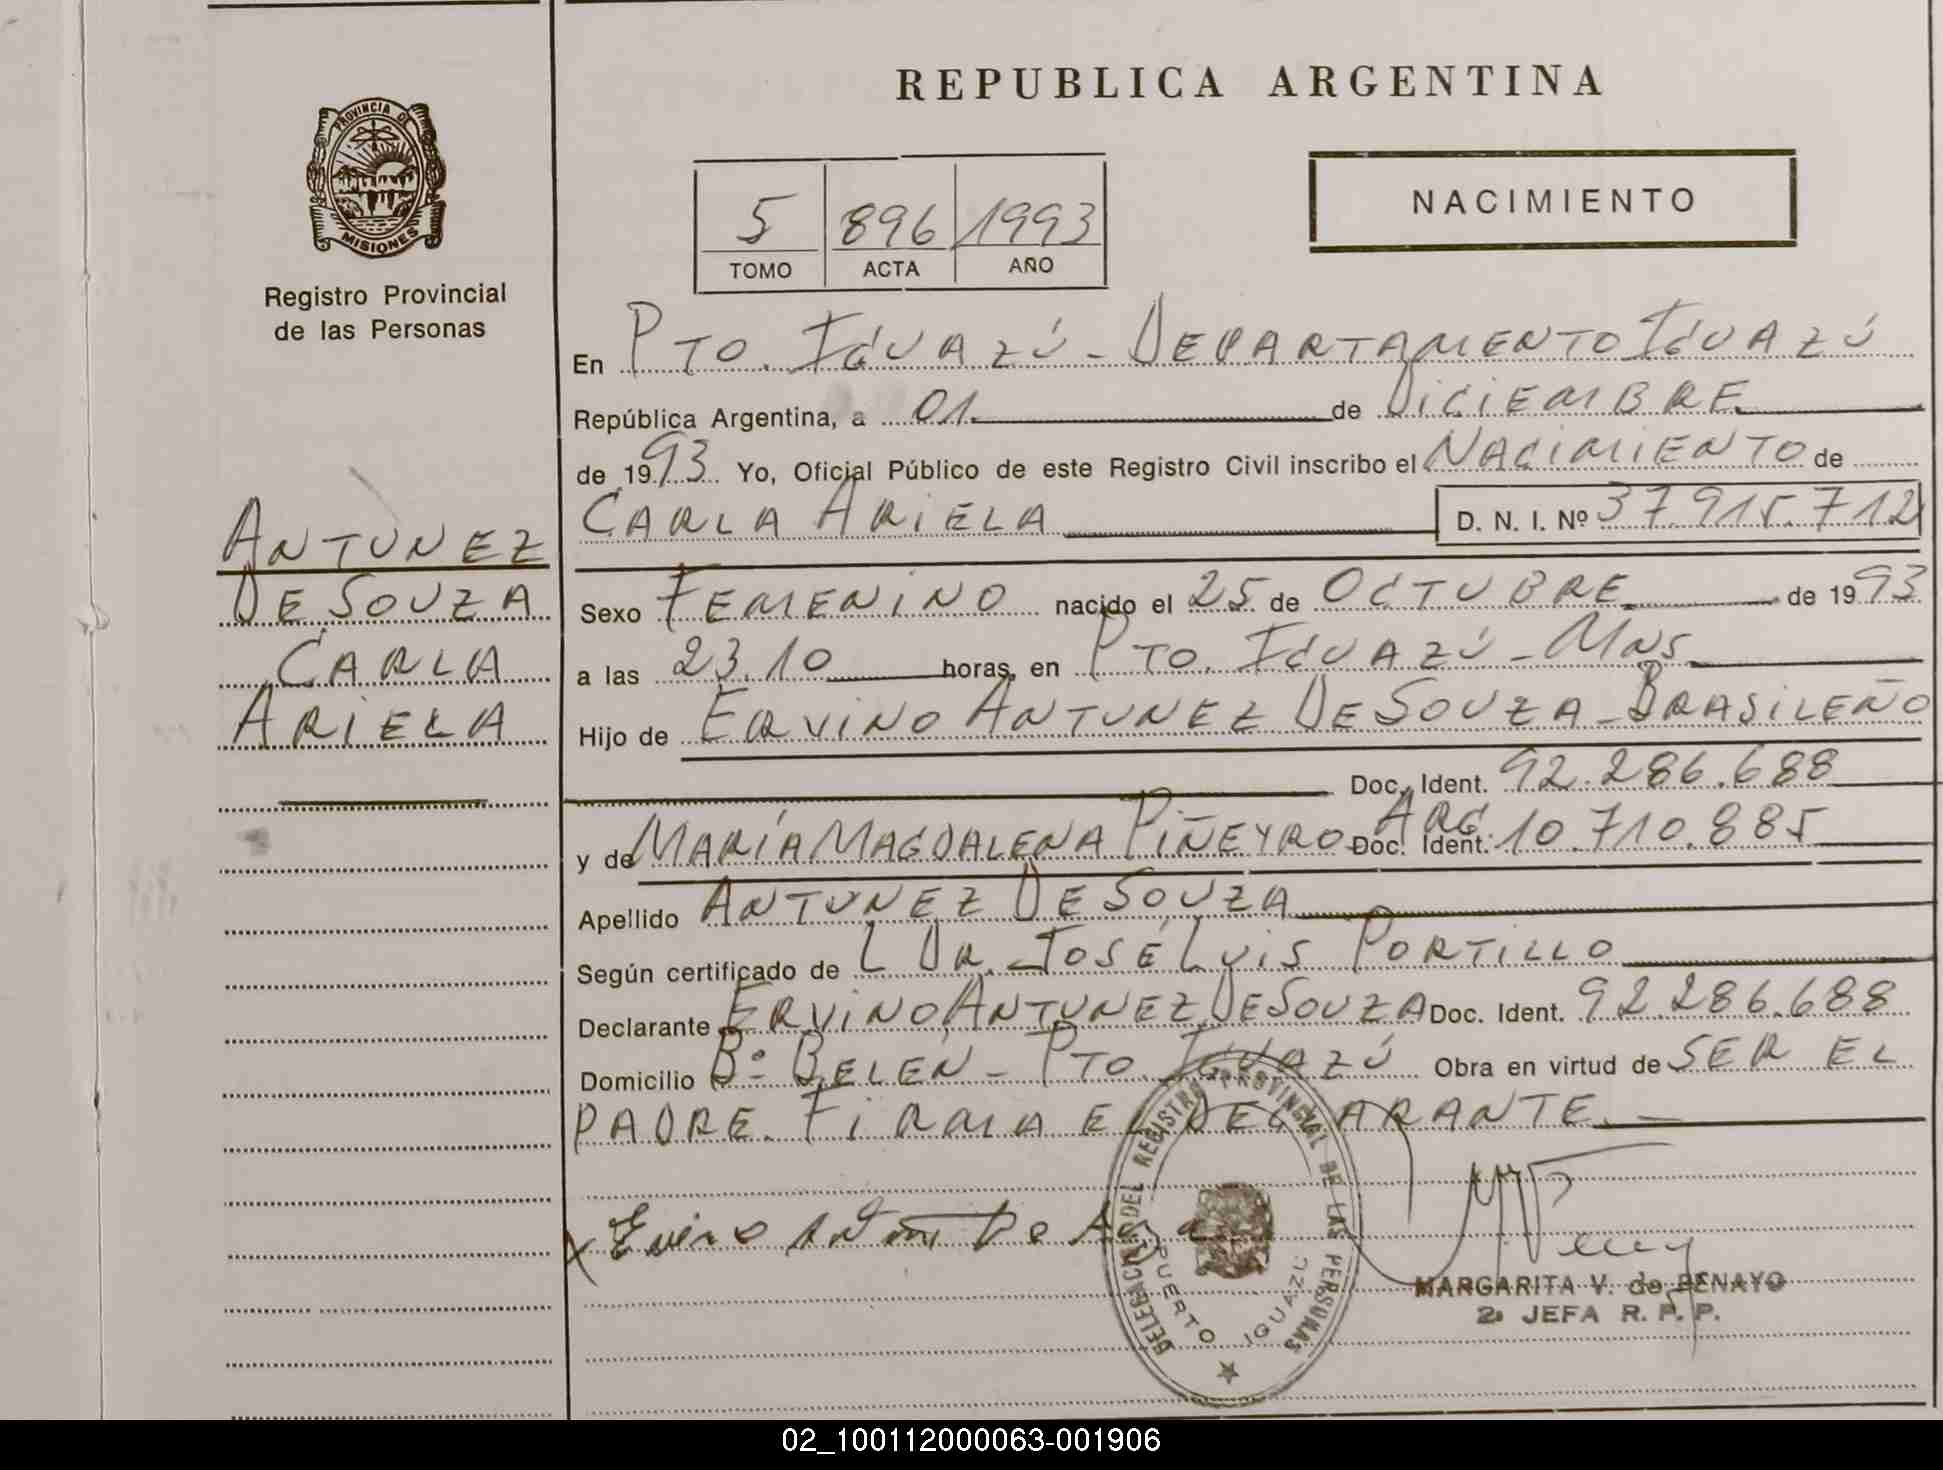 REPUBLICA ARGENTINA
PROVINCIA DE
MISIONES
Registro Provincial
de las Personas
5 896 1993
TOMO ACTA AÑO
NACIMIENTO
En PTO. IGUAZÚ - DEPARTAMENTO IGUAZÚ
República Argentina, a 01. de DICIEMBRE
de 1993 Yo, Oficial Público de este Registro Civil inscribo el NACIMIENTO de
CARLA ARIELA D. N. I. Nº 37.915.712
ANTUNEZ
DE SOUZA
CARLA
ARIELA
Sexo FEMENINO nacido el 25 de OCTUBRE de 1993
a las 23.10 horas, en PTO. IGUAZÚ - MNS
Hijo de ERVINO ANTUNEZ DE SOUZA - BRASILEÑO
Doc. Ident. 92.286.688
y de MARÍA MAGDALENA PIÑEYRO ARG. Doc. Ident. 10.710.885
Apellido ANTUNEZ DE SOUZA
Según certificado de L DR. JOSÉ LUIS PORTILLO
Declarante ERVINO ANTUNEZ DE SOUZA Doc. Ident. 92.286.688
Domicilio Bº BELÉN - PTO. IGUAZÚ Obra en virtud de SER EL
PADRE. FIRMA EL DECLARANTE. -
DELEGACION DEL REGISTRO PROVINCIAL DE LAS PERSONAS
PUERTO IGUAZU
MARGARITA V. de BENAYO
2ª JEFA R. P. P.
02_100112000063-001906